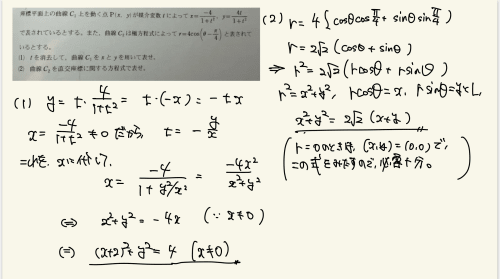 座標平面上の曲線 C₁ 上を動く点 P(x, y) が媒介変数 t によって x = -4/(1+t²), y = 4t/(1+t²)
で表されているとする。また，曲線 C₂ は極方程式によって r = 4cos(θ - π/4) と表されて
いるとする。
(1) t を消去して，曲線 C₁ を x と y を用いて表せ。
(2) 曲線 C₂ を直交座標に関する方程式で表せ。
(1) y = t・4/(1+t²) = t・(-x) = -tx
x = -4/(1+t²) ≠ 0 だから, t = -y/x
これを, xに代入して,
x = -4/(1+y²/x²) = -4x²/(x²+y²)
⇔ x²+y² = -4x (∵ x≠0)
⇔ (x+2)²+y² = 4 (x≠0)
(2) r = 4{cosθcosπ/4 + sinθsinπ/4}
r = 2√2 (cosθ + sinθ)
⇒ r² = 2√2 (rcosθ + rsinθ)
r² = x²+y², rcosθ = x, rsinθ = yとし,
x²+y² = 2√2 (x+y)
(r = 0のときは, (x,y) = (0,0) で,
この式をみたすので, 必要十分。)